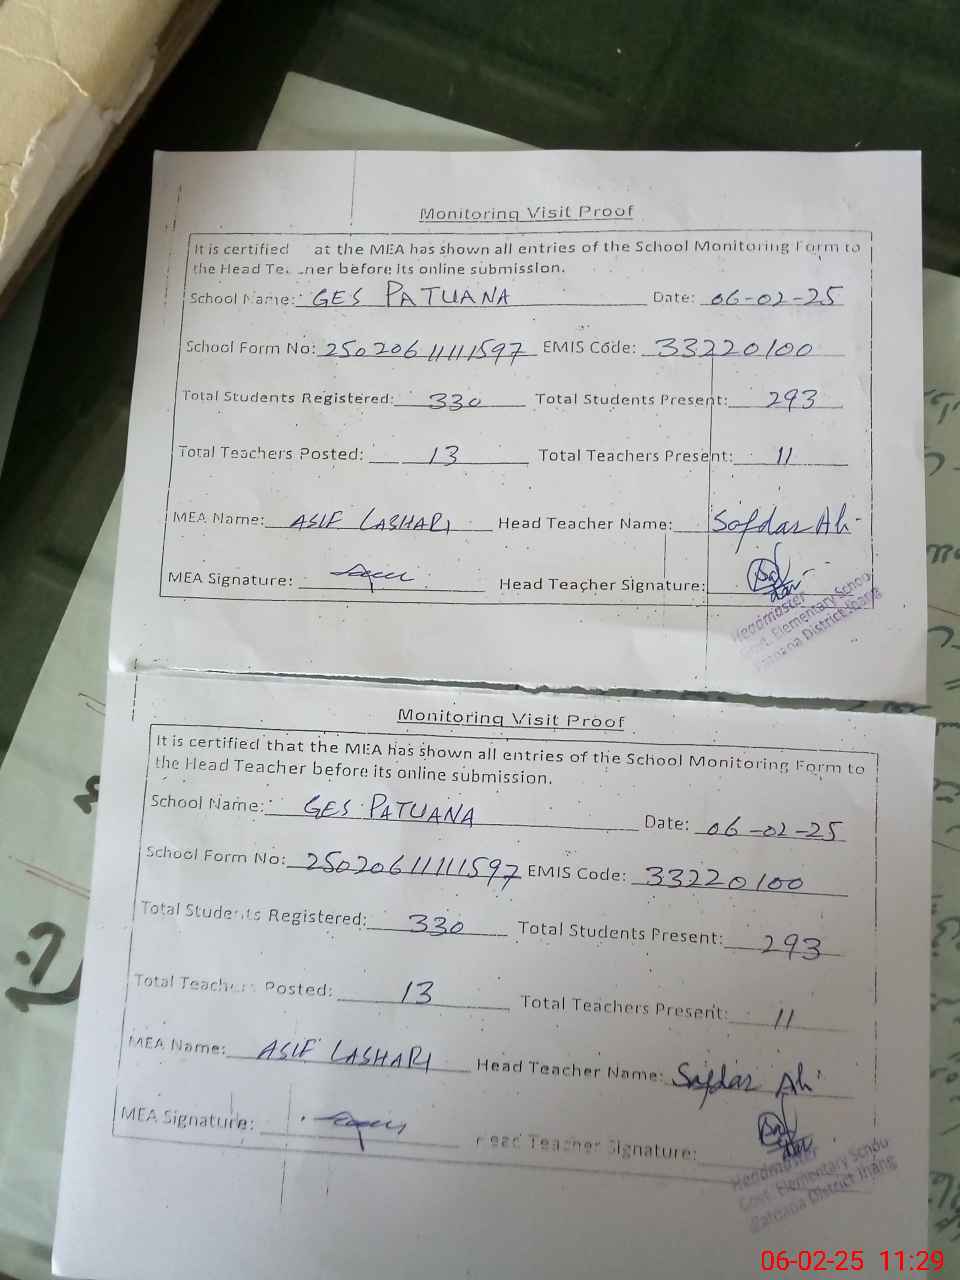 Monitoring Visit Proof
It is certified at the MEA has shown all entries of the School Monitoring Form to
the Head Teacher before its online submission.
School Name: GES PATUANA Date: 06-02-25
School Form No: 25020611111597 EMIS Code: 33220100
Total Students Registered: 330 Total Students Present: 293
Total Teachers Posted: 13 Total Teachers Present: 11
MEA Name: ASIF LASHARI Head Teacher Name: Safdar Ali
MEA Signature: Head Teacher Signature:
Headmaster
Govt. Elementary School
Patoana District Jhang
Monitoring Visit Proof
It is certified that the MEA has shown all entries of the School Monitoring Form to
the Head Teacher before its online submission.
School Name: GES PATUANA Date: 06-02-25
School Form No: 25020611111597 EMIS Code: 33220100
Total Students Registered: 330 Total Students Present: 293
Total Teachers Posted: 13 Total Teachers Present: 11
MEA Name: ASIF LASHARI Head Teacher Name: Safdar Ali
MEA Signature: Head Teacher Signature:
Headmaster
Govt. Elementary School
Patoana District Jhang
06-02-25 11:29